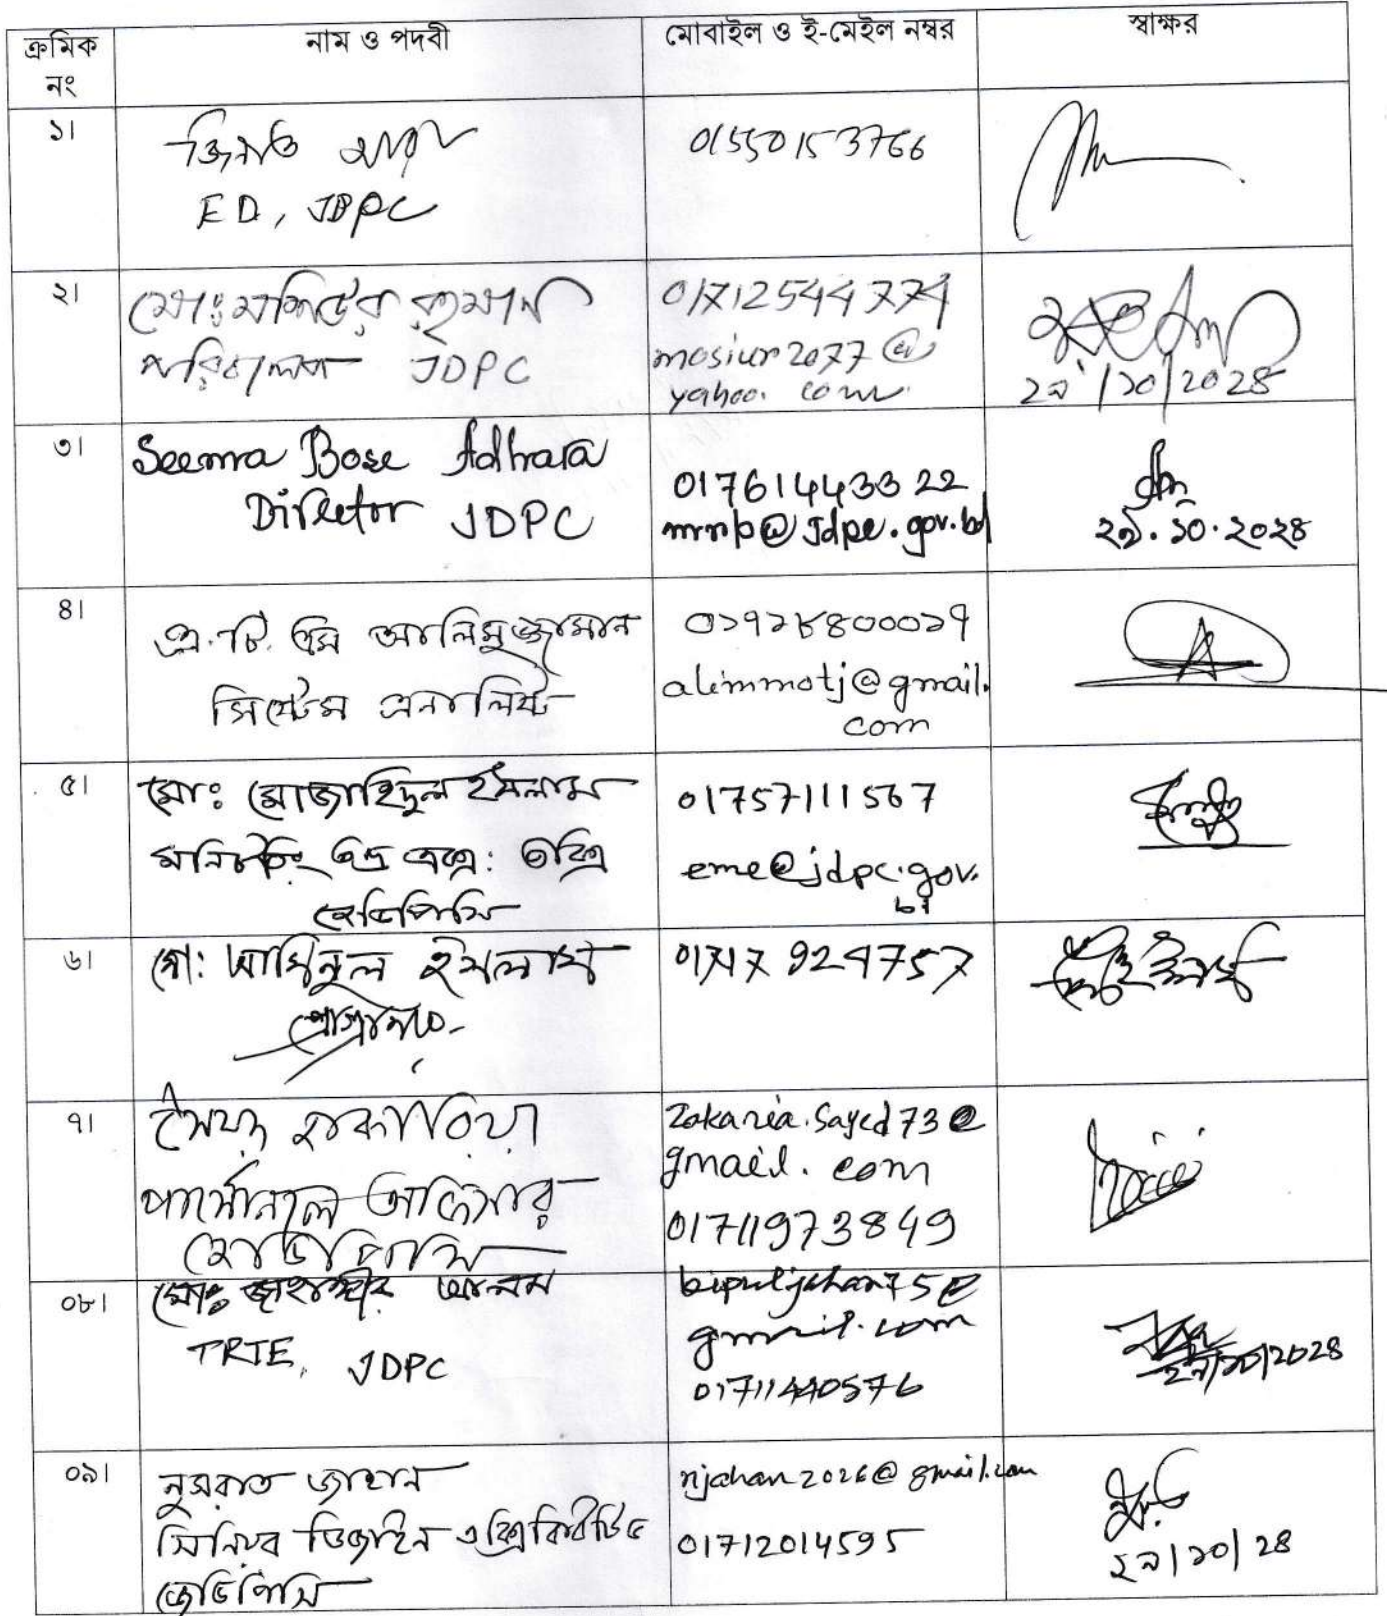 ক্রমিক নং
নাম ও পদবী
মোবাইল ও ই-মেইল নম্বর
স্বাক্ষর
১।
জিনাত আরা
ED, JDPC
01550153766
২।
মোঃ মশিউর রহমান
পরিচালক JDPC
01712544774
mosiur2077@
yahoo.com
২৯/১০/২০২৪
৩।
Seema Bose Adhara
Director JDPC
01761443322
mmp@jdpc.gov.bd
২৯.১০.২০২৪
৪।
এ.টি.এম আলিমুজ্জামান
সিস্টেম এনালিস্ট
alimmotj@gmail.
com
৫।
মোঃ মোজাহিদুল ইসলাম
জেডিপিসি
01757111567
eme@jdpc.gov.
bd
৬।
মো: আমিনুল ইসলাম
প্রোগ্রামার
01717924757
৭।
সৈয়দ জাকারিয়া
পার্সোনাল অফিসার
জেডিপিসি
zakaria.sayed73@
gmail.com
01711973849
০৮।
মোঃ জাহাঙ্গীর আলম
TRTE, JDPC
bipuljahan75@
gmail.com
01711440576
২৯/১০/২০২৪
০৯।
নুসরাত জাহান
সিনিয়র ডিজাইন এক্সিকিউটিভ
জেডিপিসি
njahan2026@gmail.com
01712014595
২৯/১০/২৪